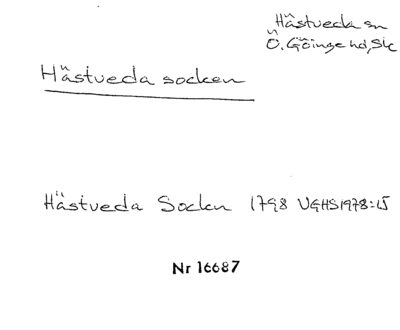 Hästveda sn
Ö. Göinge hd, Sk
Hästveda socken
Hästveda Socken 1798 VGHS 1978:15
Nr 16687